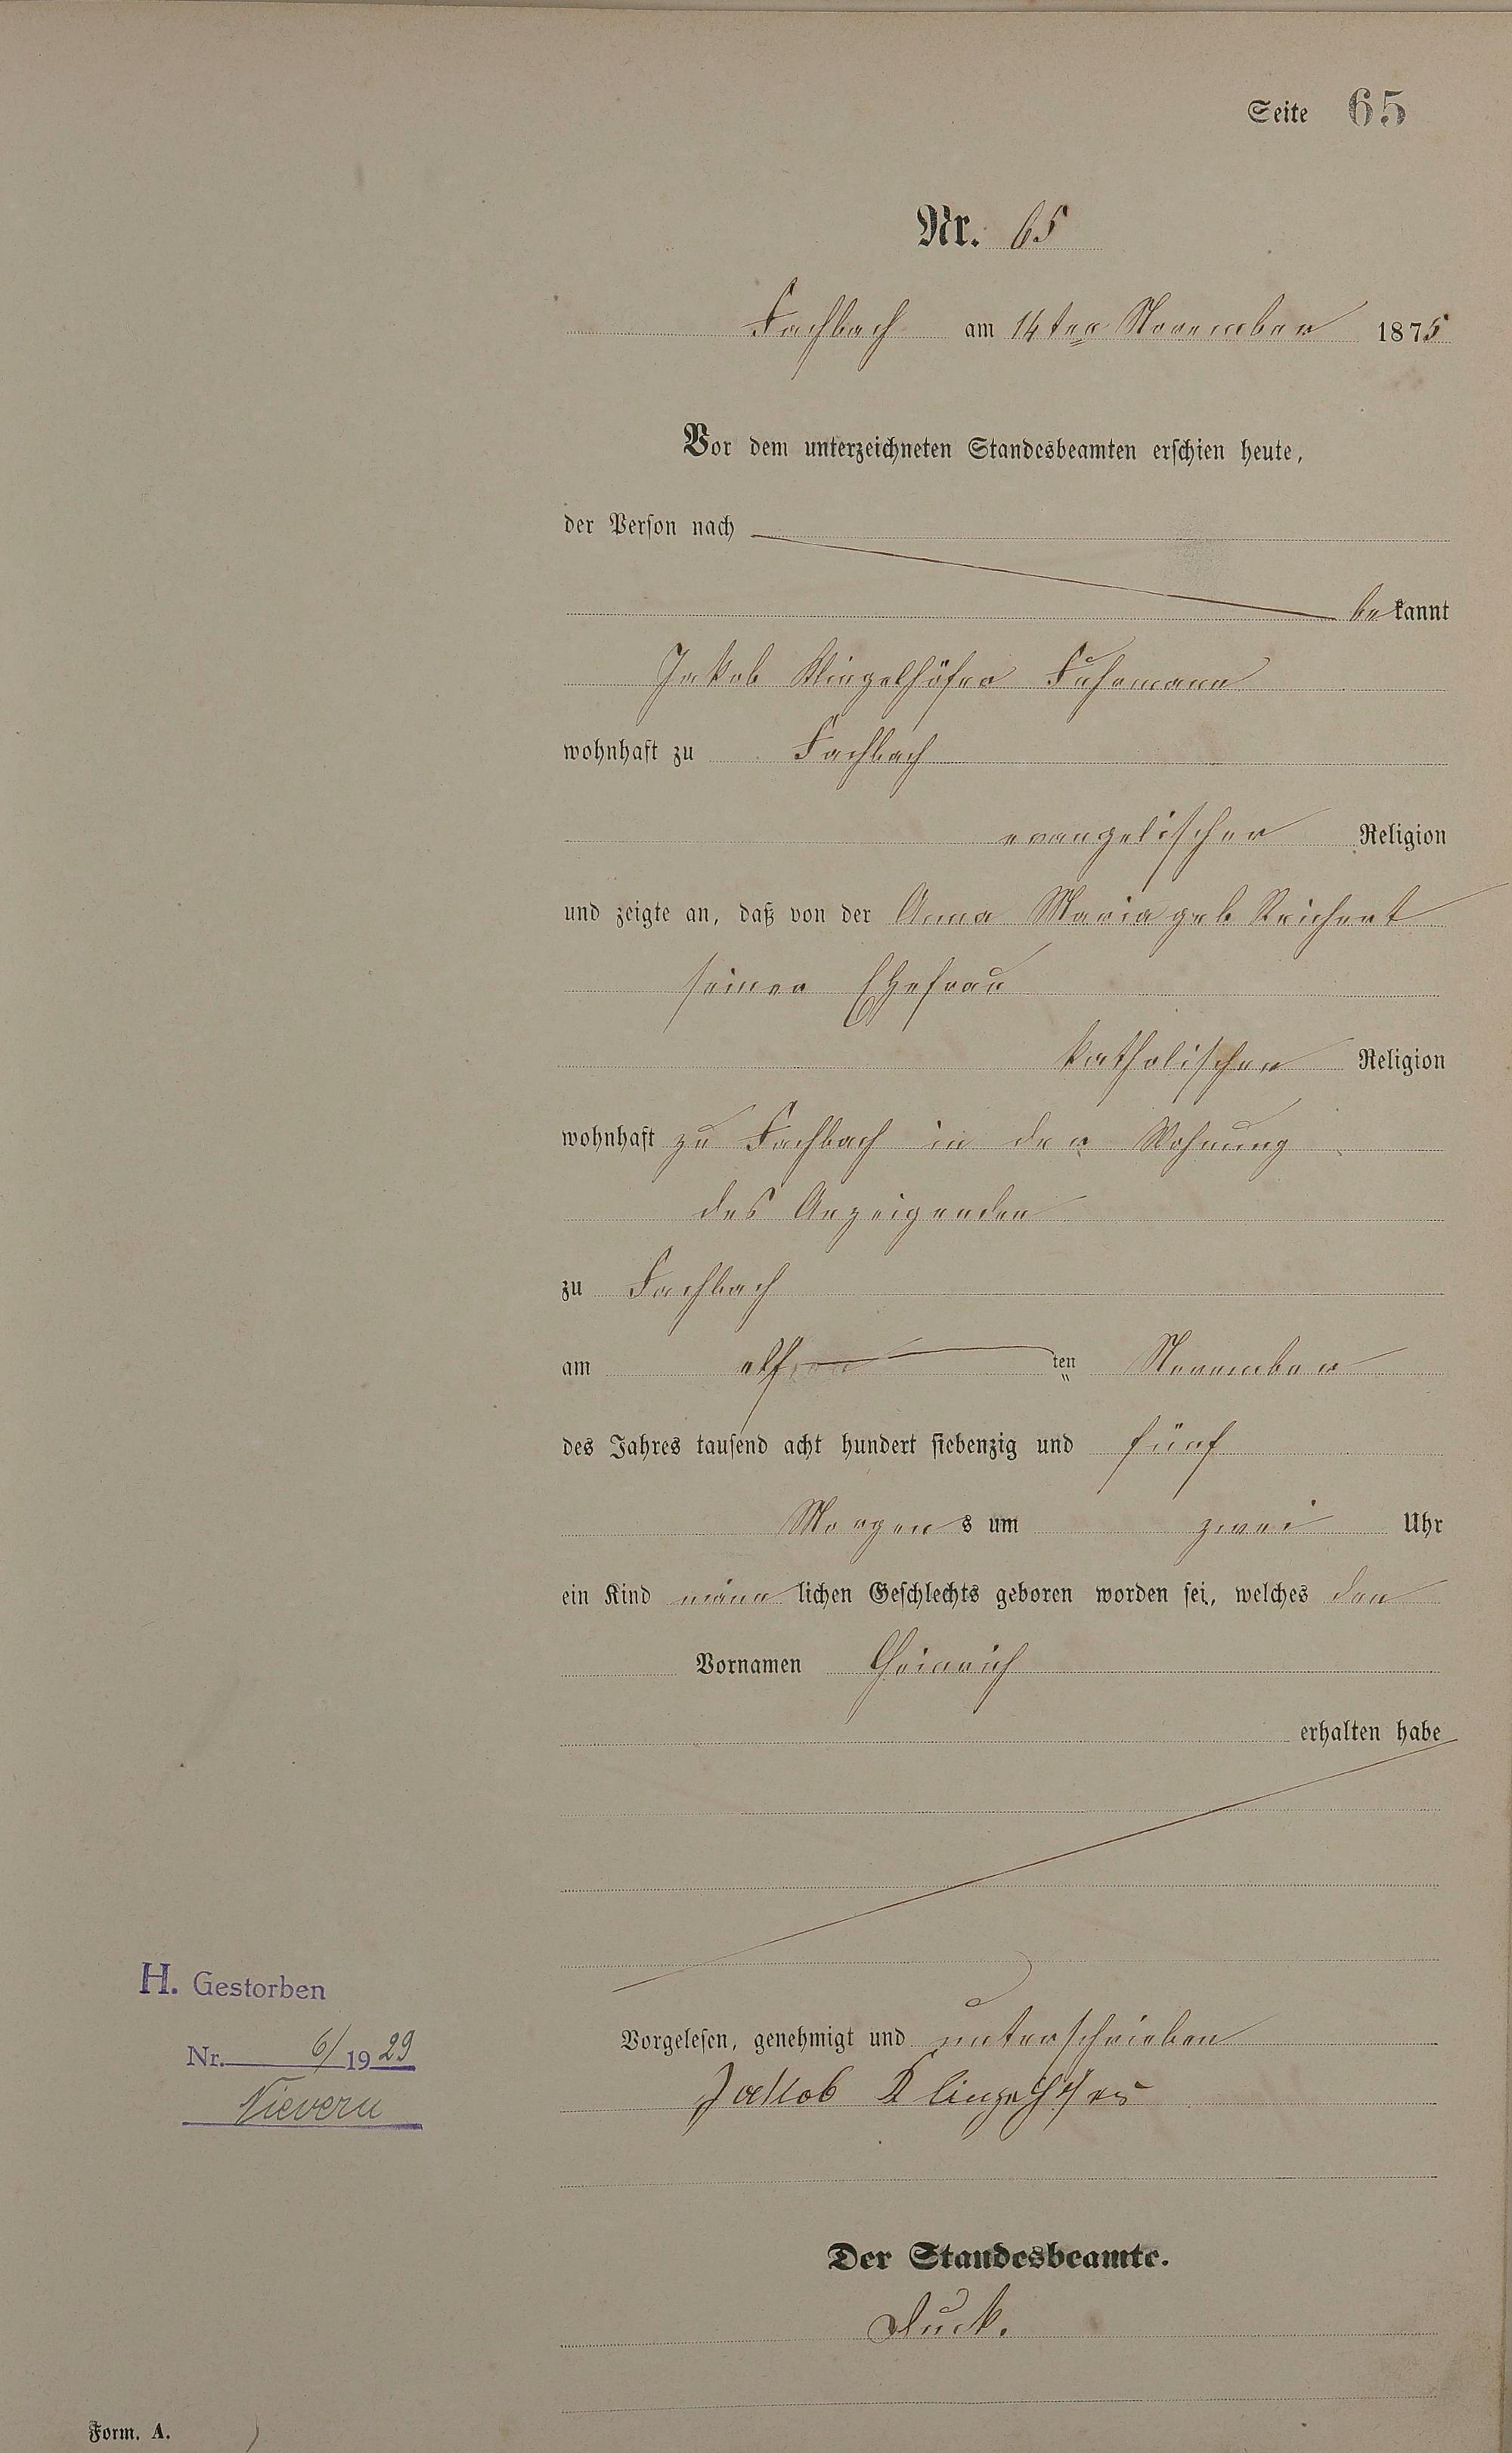 Seite 65
Nr. 65
Fachbach am 14ten November 1875
Vor dem unterzeichneten Standesbeamten erschien heute,
der Person nach
bekannt
Jakob Klingelhöfer Fuhrmann
wohnhaft zu Fachbach
evangelischer Religion
und zeigte an, daß von der Anna Maria geb Reichert
seiner Ehefrau
katholischer Religion
wohnhaft zu Fachbach in der Wohnung
des Anzeigenden
zu Fachbach
am elf ten November
des Jahres tausend acht hundert siebenzig und fünf
Morgens um zwei Uhr
ein Kind männlichen Geschlechts geboren worden sei, welches den
Vornamen Heinrich
erhalten habe
H. Gestorben
Nr. 6/1929
Nievern
Vorgelesen, genehmigt und unterschrieben
Jakob Klingelhöfer
Der Standesbeamte.
Form. A.